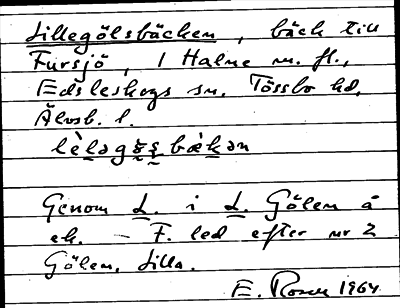 Lillegölsbäcken, bäck till
Fursjö, 1 Halne m. fl.,
Edsleskogs sn. Tössbo hd,
Älvsb. l.
lèləgö̀sbæ̀kən
Genom L. i L. Gölen å
ek. – F. led efter nr 2
Gölen, Lilla.
E. 1964